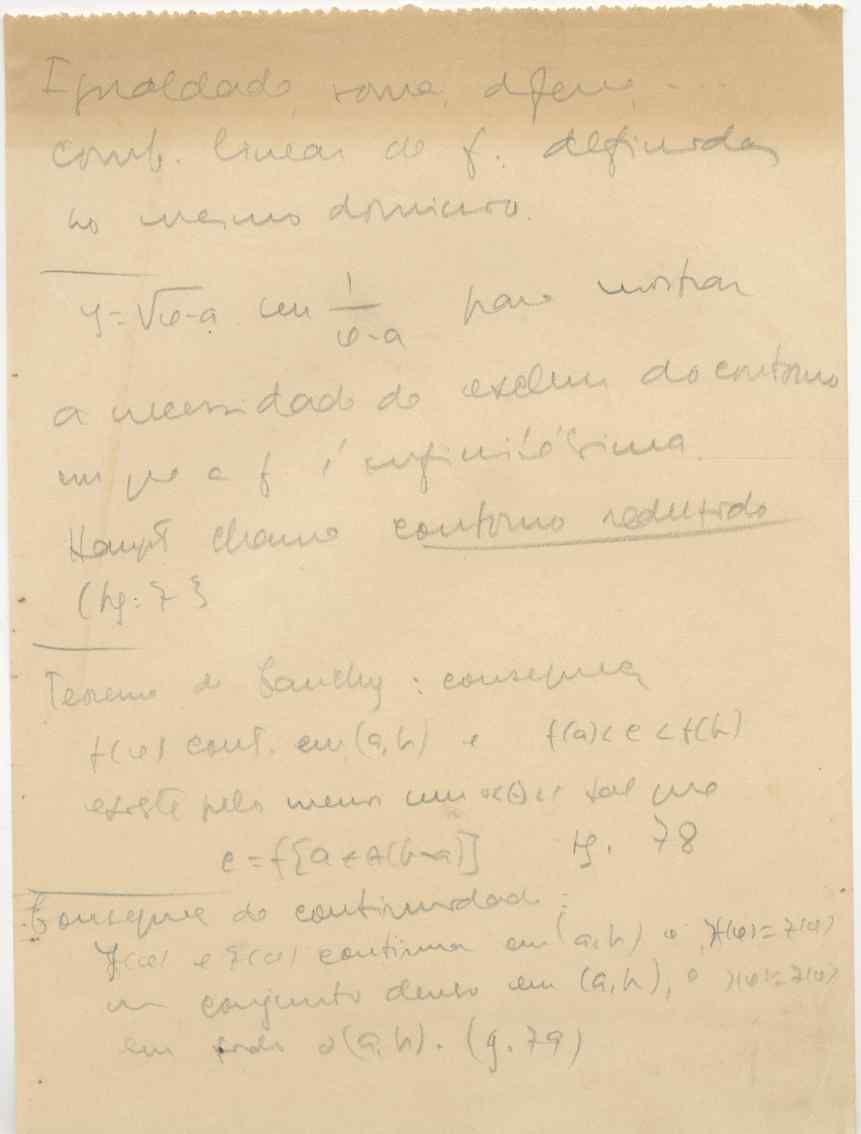 Igualdade, soma, difer., ...
comb. linear de f. definidas
no mesmo dominio.
y=√x-a com 1/x-a para mostrar
a necessidade de excluir do contorno
em que a f é infinitésima.
Haupt chama contorno reduzido
(pg: 73
Teorema de Cauchy: consequencia
f(x) cont. em (a,b) e f(a)<c<f(b)
existe pelo menos um 0<θ<1 tal que
c=f[a+θ(b-a)] pg. 78
Consequencia da continuidade:
y(x) e z(x) continua em (a,b) e y(x)=z(x)
um conjunto denso em (a,b), e y(x)=z(x)
em todo o (a,b). (g. 79)